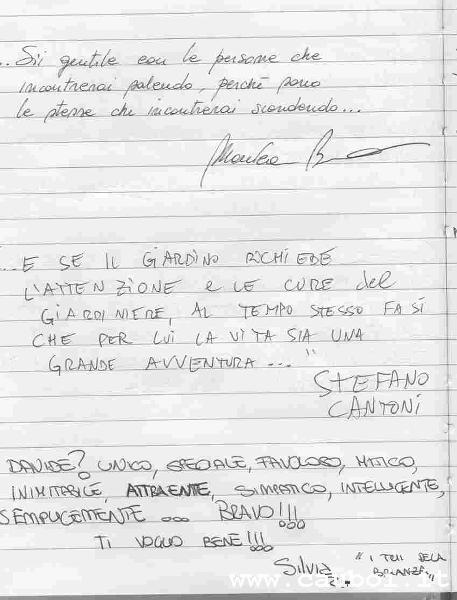 ...Sii gentile con le persone che
incontrerai salendo, perchè sono
le stesse che incontrerai scendendo...
...E SE IL GIARDINO RICHIEDE
L'ATTENZIONE e LE CURE del
GIARDINIERE, AL TEMPO STESSO FA SI
CHE PER LUI LA VITA SIA UNA
GRANDE AVVENTURA..."
STEFANO
CANTONI
DAVIDE? UNICO, SPECIALE, FAVOLOSO, MITICO,
INIMITABILE, ATTRAENTE, SIMPATICO, INTELLIGENTE,
SEMPLICEMENTE ... BRAVO!!!
TI VOGLIO BENE!!!
Silvia
BRIANZA"